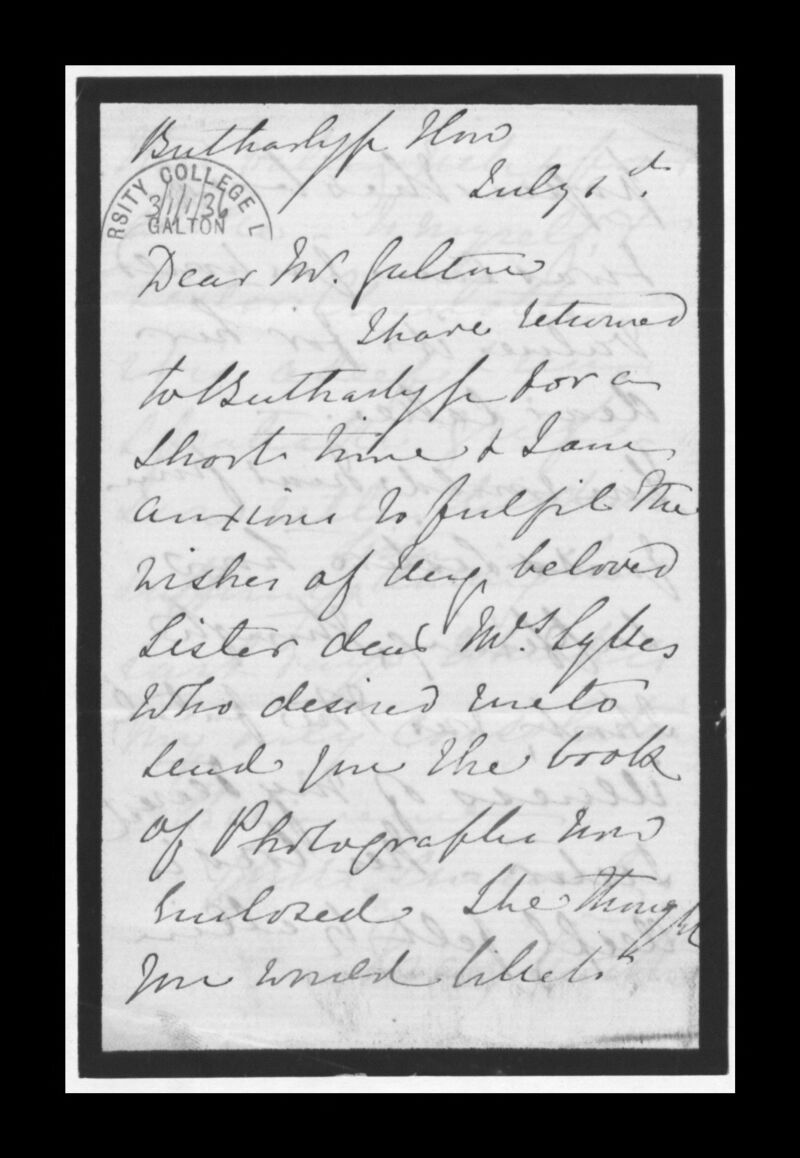 Butharlyp How
July 1st.
RSITY COLLEGE L
GALTON
Dear Mr. Galton
I have returned
to Butharlyp for a
short time & I am
anxious to fulfil the
wishes of my beloved
Sister dear Mrs Sykes
who desired me to
send you the book
of Photographs now
enclosed She thought
you would like to